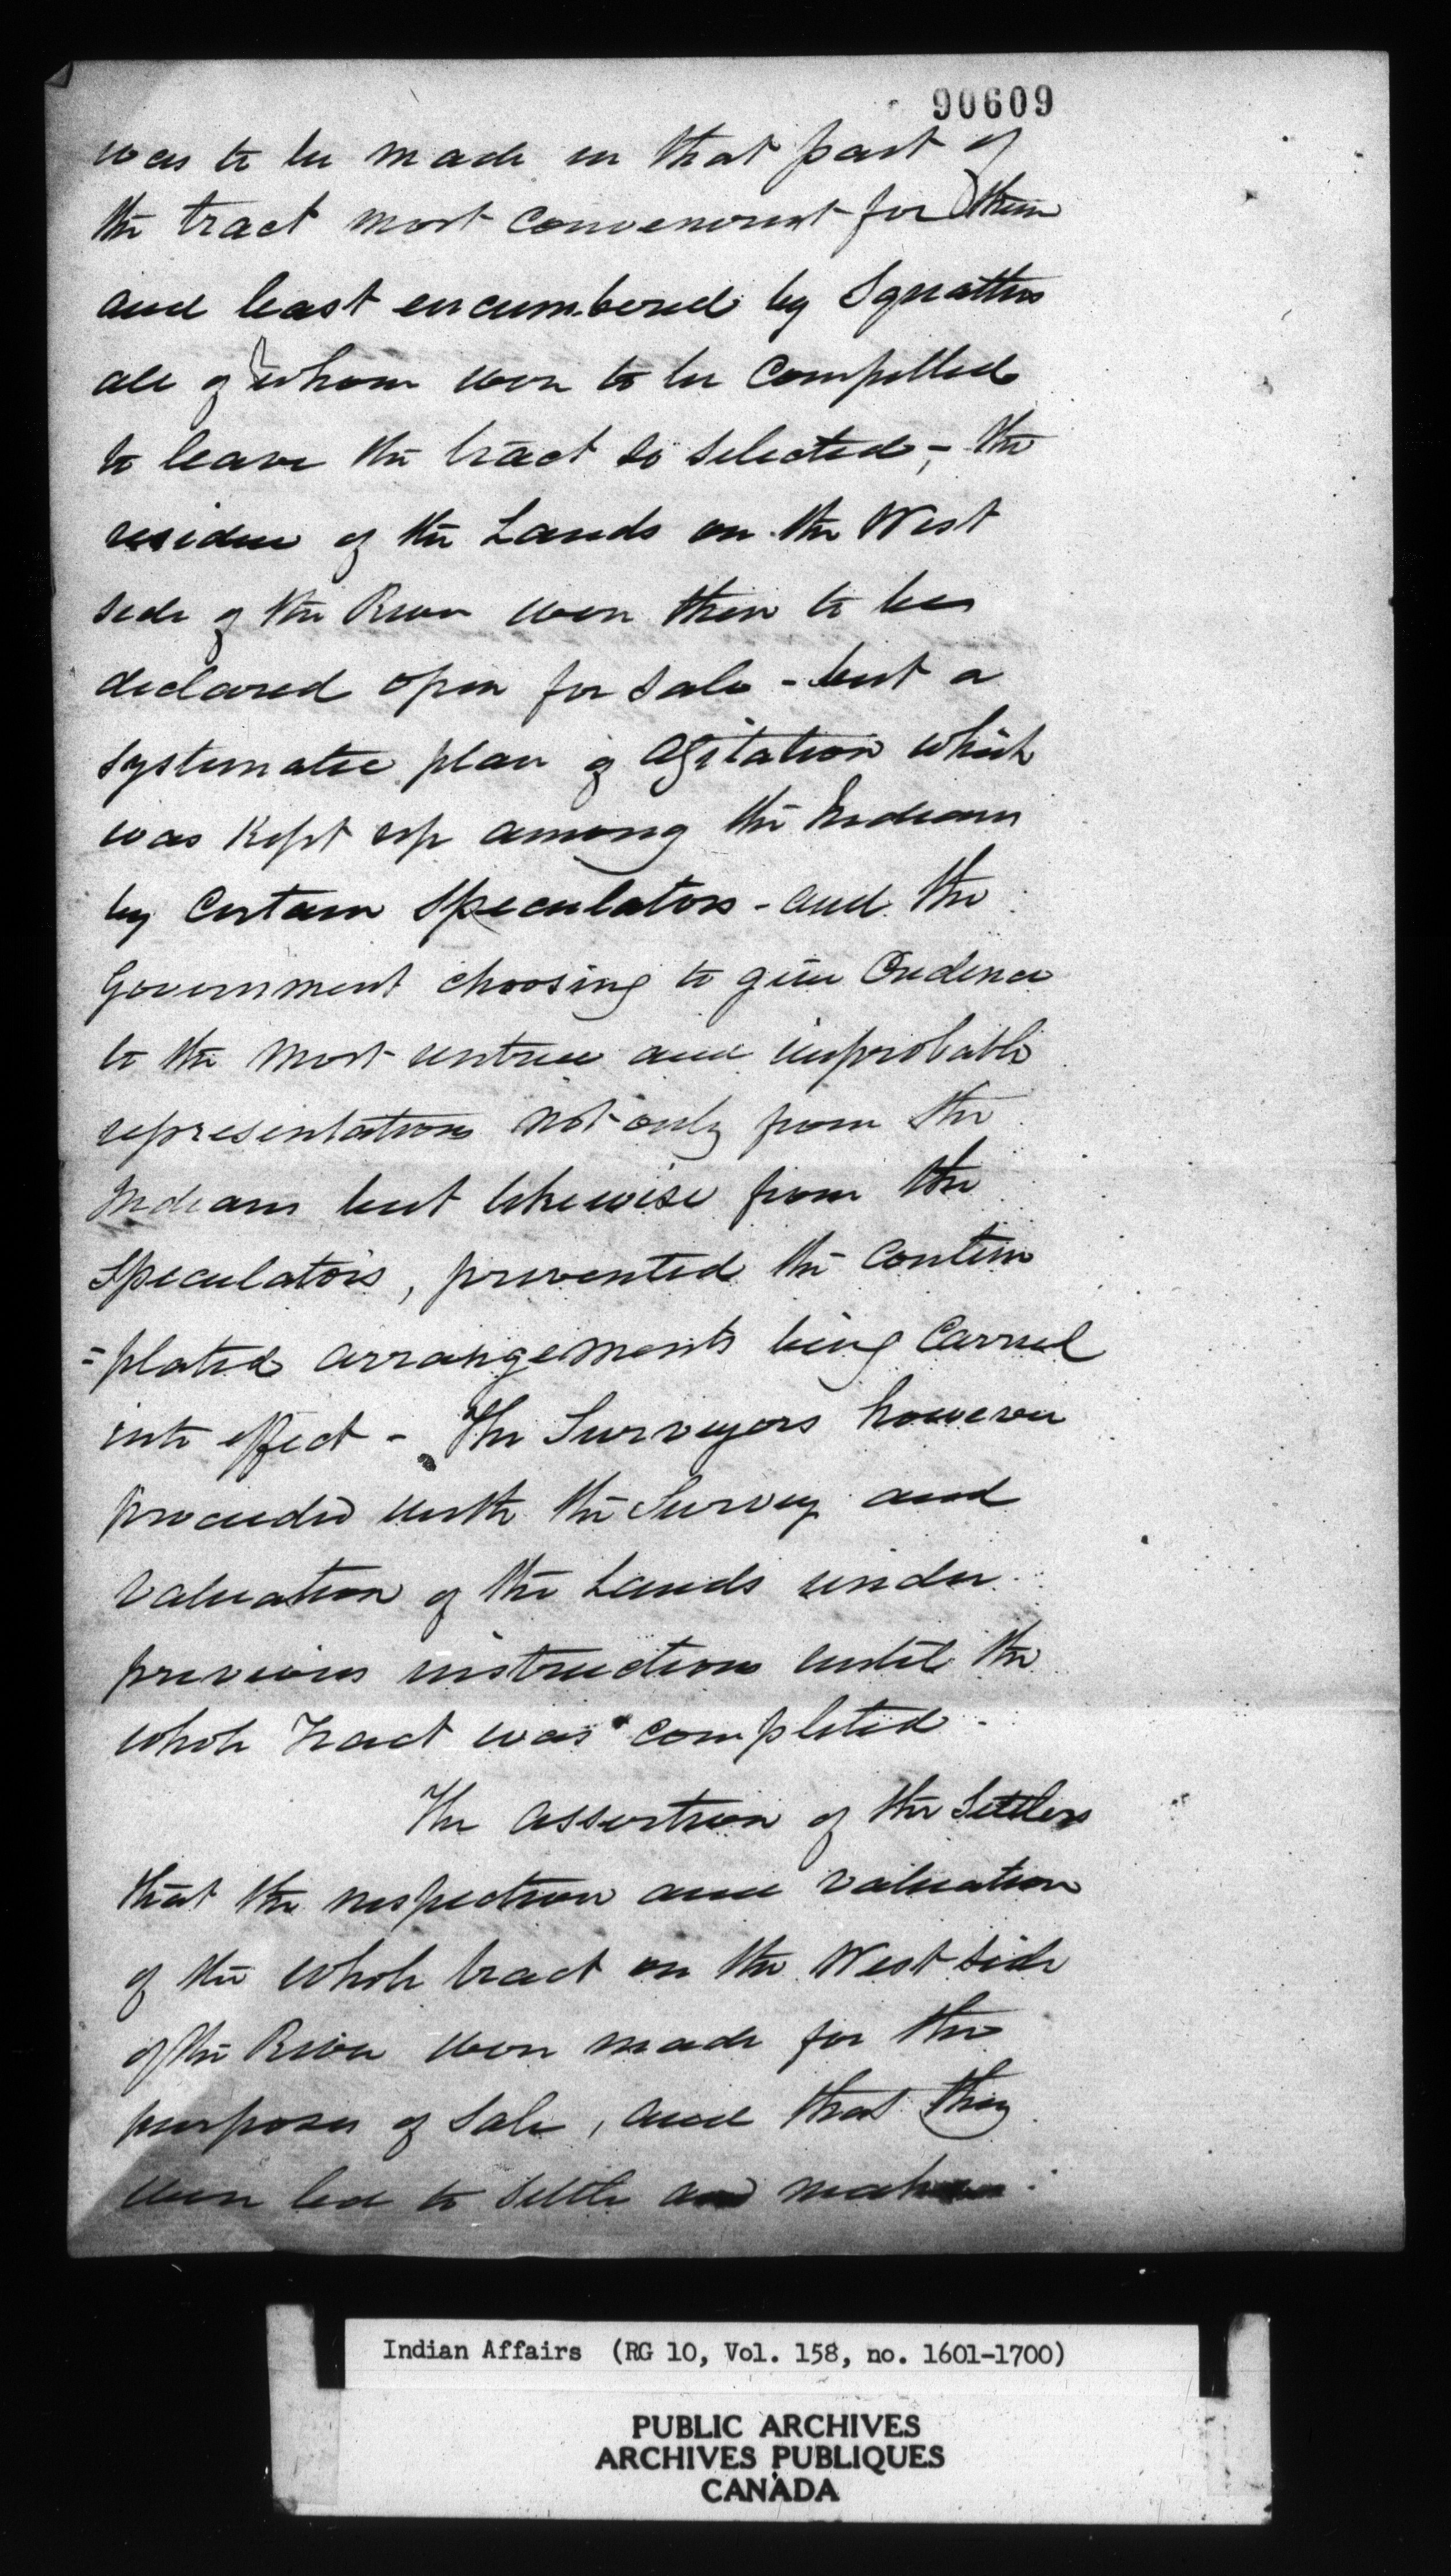 90609
was to be made in that part of
the tract most convenient for them
and least encumbered by Squatters
all of whom were to be compelled
to leave the tract so selected, - the
residue of the Lands on the West
side of the River were then to be
declared open for sale - but a
systematic plan of agitation which
was kept up among the Indians
by certain speculators - and the
Government choosing to give Credence
to the most untrue and improbable
representations not only from the
Indians but likewise from the
Speculators, prevented the contem
=plated arrangements being Carried
into effect - The Surveyors however
proceeded with the Survey and
valuation of the Lands under
previous instructions until the
whole tract was completed -
The assertion of the Settlers
that the inspection and valuation
of the whole tract on the West side
of the River were made for the
purposes of Sale, and that they
were led to settle and make
Indian Affairs (RG 10, Vol. 158, no. 1601-1700)
PUBLIC ARCHIVES
ARCHIVES PUBLIQUES
CANADA